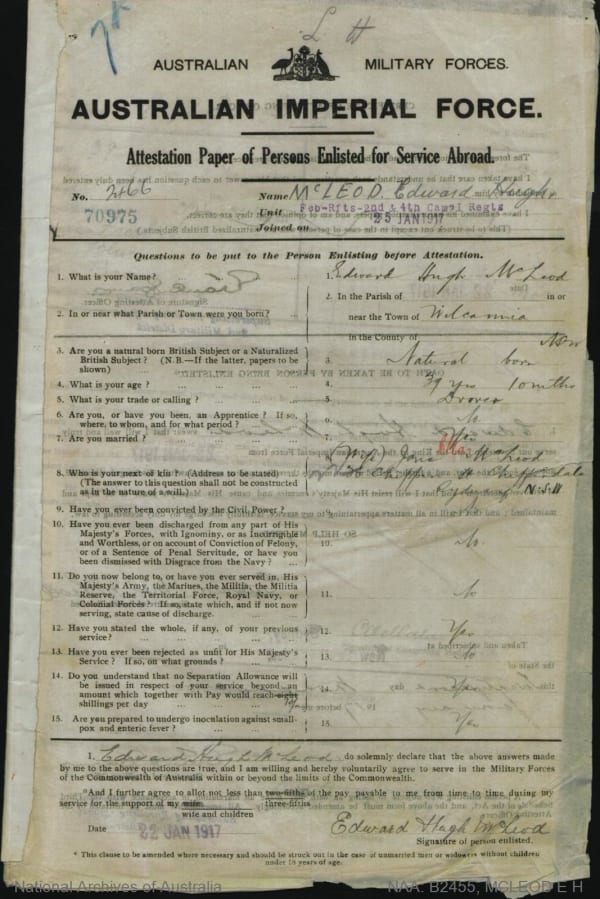 L H
AUSTRALIAN MILITARY FORCES.
AUSTRALIAN IMPERIAL FORCE.
Attestation Paper of Persons Enlisted for Service Abroad.
No. 2466 Name McLEOD. Edward Hugh
70975 Unit Feb-Rfts-2nd & 4th Camel Regtz
Joined on 25 JAN 1917
Questions to be put to the Person Enlisting before Attestation.
1. What is your Name? ... 1. Edward Hugh McLeod
2. In or near what Parish or Town were you born? 2. In the Parish of in or
near the Town of Wilcannia
in the County of NSW
3. Are you a natural born British Subject or a Naturalized
British Subject? (N.B.—If the latter, papers to be
shown) 3. Natural born
4. What is your age? 4. 39 yrs 10 mths
5. What is your trade or calling? 5. Drover
6. Are you, or have you been, an Apprentice? If so,
where, to whom, and for what period? 6. No
7. Are you married? 7. Yes
8. Who is your next of kin? (Address to be stated)
(The answer to this question shall not be construed
as in the nature of a will.) (Wife) McLeod
St
Sydney N.S.W
9. Have you ever been convicted by the Civil Power? 9. No
10. Have you ever been discharged from any part of His
Majesty's Forces, with Ignominy, or as Incorrigible
and Worthless, or on account of Conviction of Felony,
or of a Sentence of Penal Servitude, or have you
been dismissed with Disgrace from the Navy? 10. No
11. Do you now belong to, or have you ever served in, His
Majesty's Army, the Marines, the Militia, the Militia
Reserve, the Territorial Force, Royal Navy, or
Colonial Forces? If so, state which, and if not now
serving, state cause of discharge. 11. No
12. Have you stated the whole, if any, of your previous
service? 12. Yes
13. Have you ever been rejected as unfit for His Majesty's
Service? If so, on what grounds? 13. No
14. Do you understand that no Separation Allowance will
be issued in respect of your service beyond an
amount which together with Pay would reach eight
shillings per day 14. Yes
15. Are you prepared to undergo inoculation against small-
pox and enteric fever? 15. Yes
I, Edward Hugh McLeod do solemnly declare that the above answers made
by me to the above questions are true, and I am willing and hereby voluntarily agree to serve in the Military Forces
of the Commonwealth of Australia within or beyond the limits of the Commonwealth.
*And I further agree to allot not less than two-fifths of the pay payable to me from time to time during my
three-fifths
service for the support of my wife
wife and children
Date 22 JAN 1917 Edward Hugh McLeod
Signature of person enlisted.
* This clause to be amended where necessary and should be struck out in the case of unmarried men or widowers without children
under 18 years of age.
National Archives of Australia NAA: B2455, MCLEOD E H